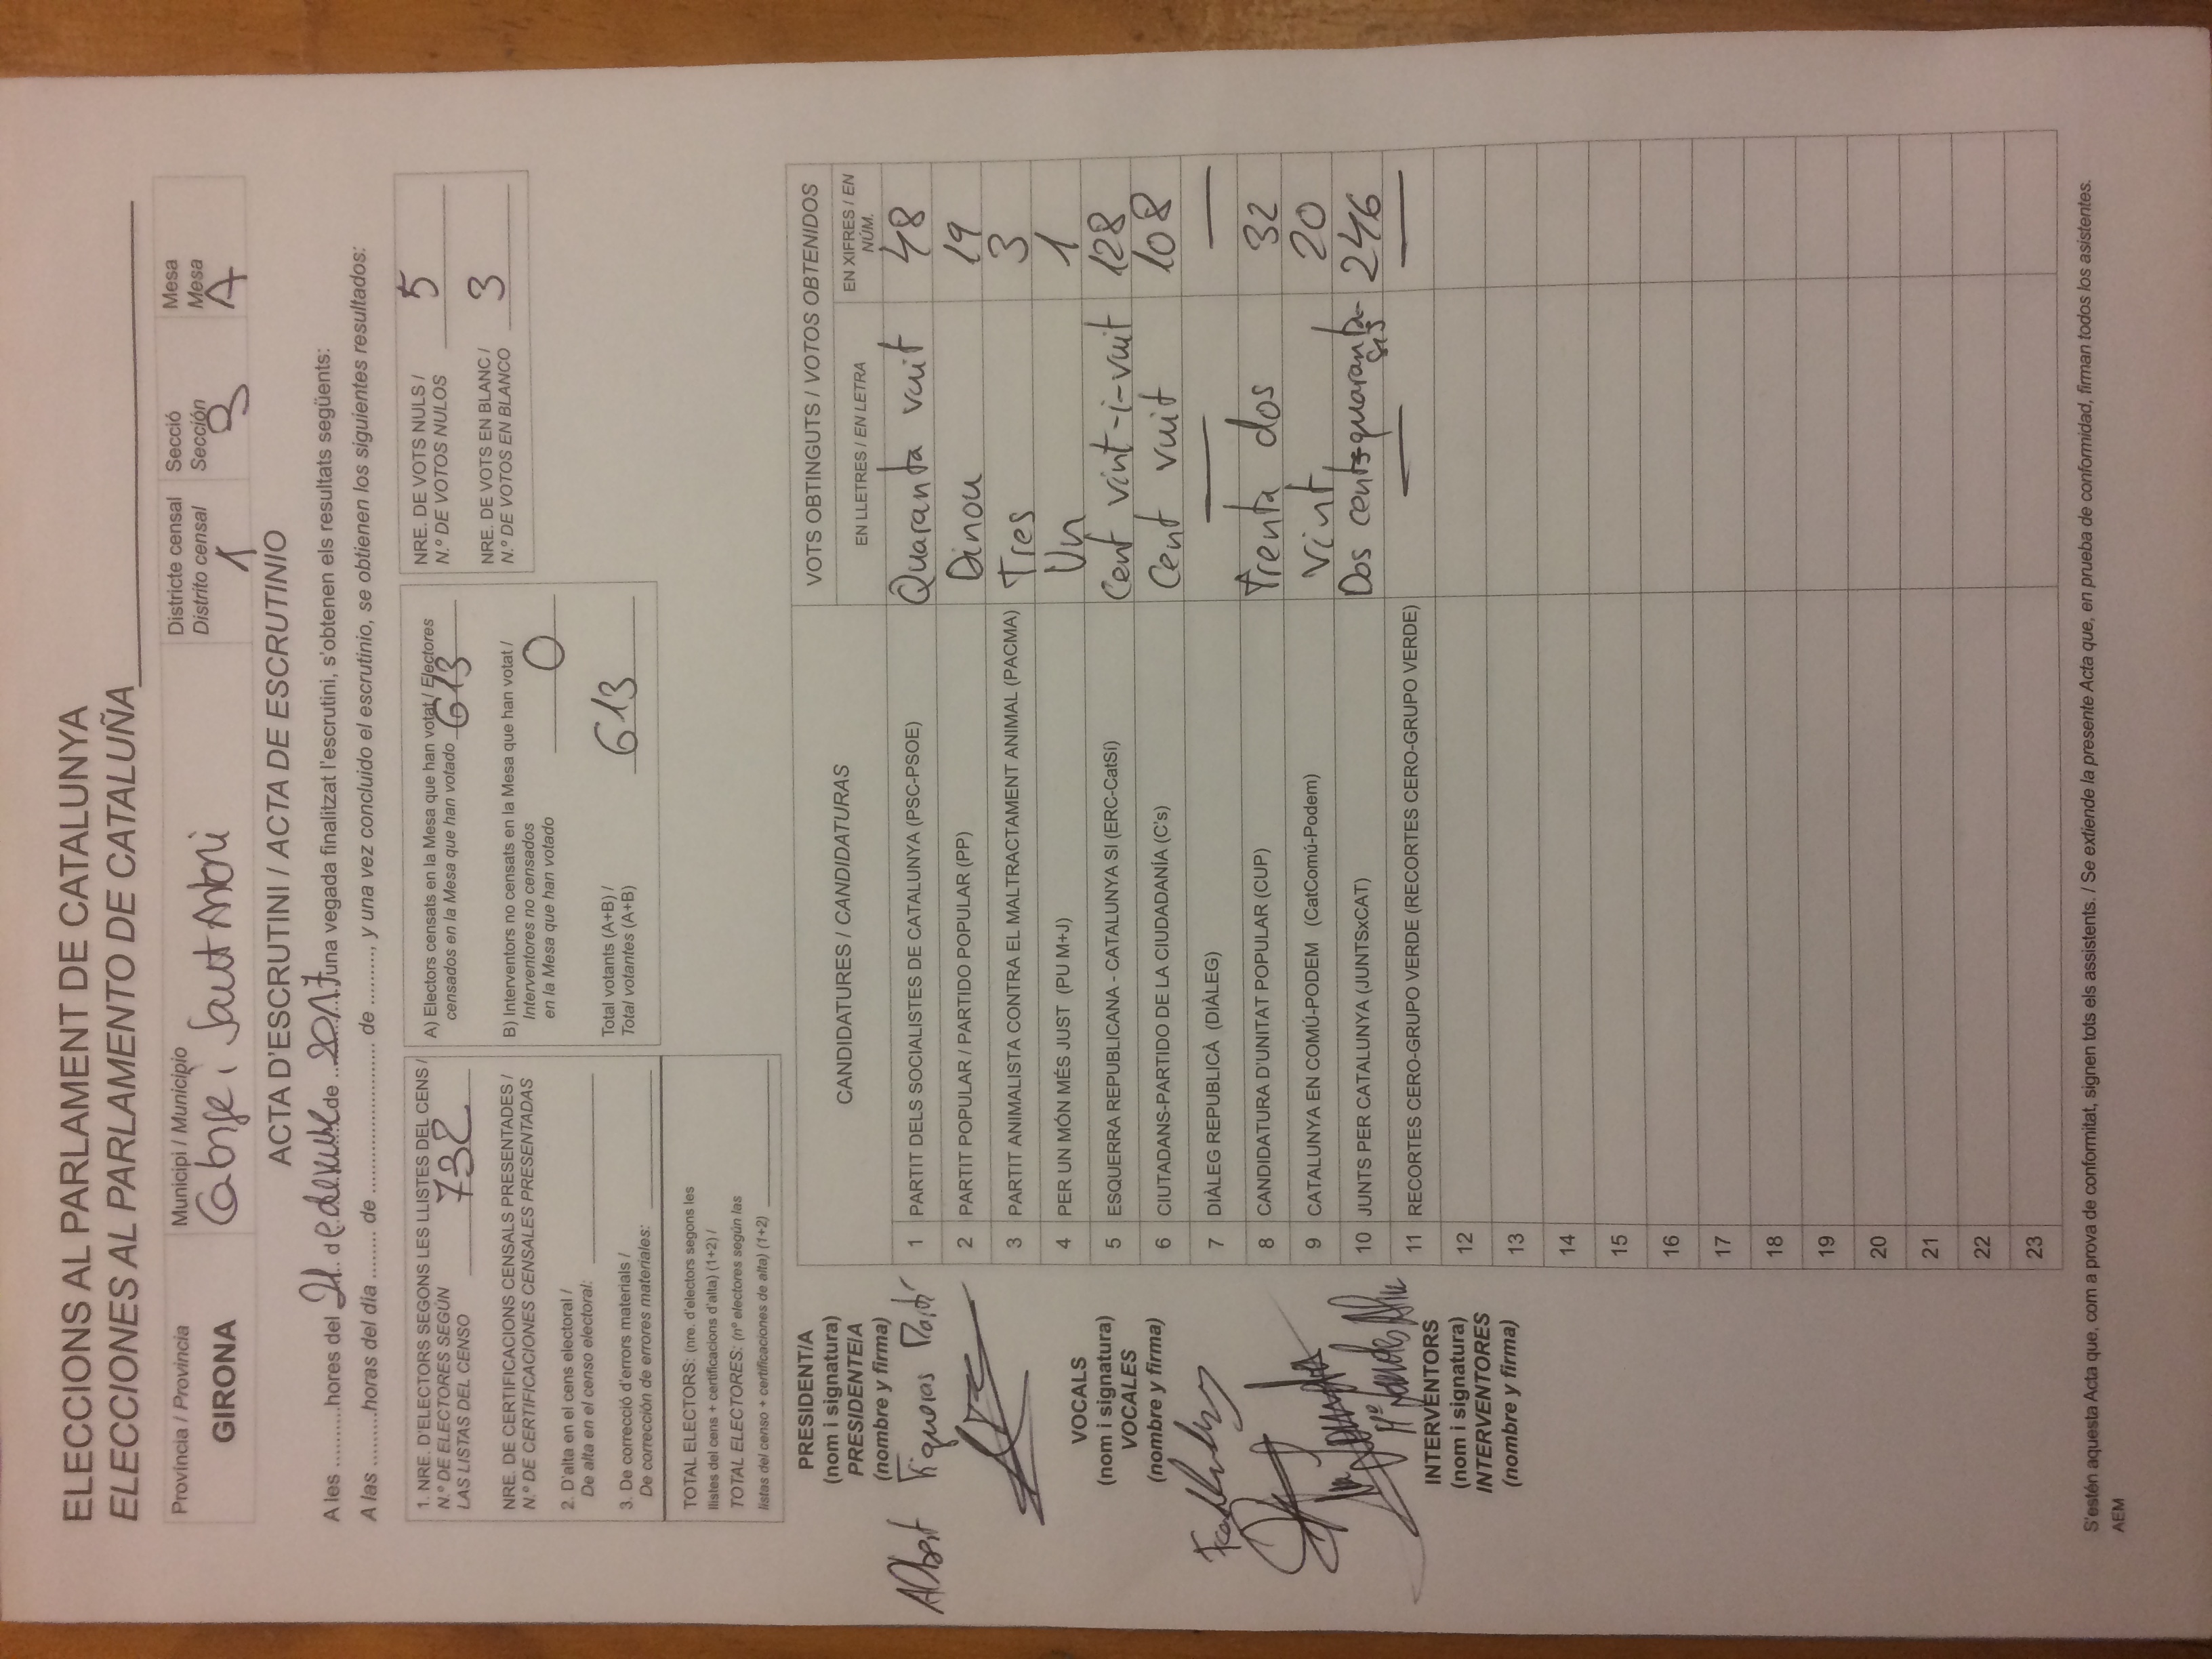 ELECCIONS AL PARLAMENT DE CATALUNYA
ELECCIONES AL PARLAMENTO DE CATALUÑA
Provincia / Provincia
GIRONA
Municipi / Municipio
Calonge i Sant Antoni
Districte censal
Distrito censal
1
Secció
Sección
3
Mesa
Mesa
A
ACTA D'ESCRUTINI / ACTA DE ESCRUTINIO
A les ..........hores del 21 de desembre de 2017 una vegada finalitzat l'escrutini, s'obtenen els resultats següents:
A las ..........horas del día ........ de ........................ de ........., y una vez concluido el escrutinio, se obtienen los siguientes resultados:
1. NRE. D'ELECTORS SEGONS LES LLISTES DEL CENS /
N.º DE ELECTORES SEGÚN
LAS LISTAS DEL CENSO 732
NRE. DE CERTIFICACIONS CENSALS PRESENTADES /
N.º DE CERTIFICACIONES CENSALES PRESENTADAS
2. D'alta en el cens electoral /
De alta en el censo electoral:
3. De correcció d'errors materials /
De corrección de errores materiales:
TOTAL ELECTORS: (nre. d'electors segons les
llistes del cens + certificacions d'alta) (1+2) /
TOTAL ELECTORES: (nº electores según las
listas del censo + certificaciones de alta) (1+2)
A) Electors censats en la Mesa que han votat / Electores
censados en la Mesa que han votado 613
B) Interventors no censats en la Mesa que han votat /
Interventores no censados
en la Mesa que han votado 0
Total votants (A+B) /
Total votantes (A+B) 613
NRE. DE VOTS NULS /
N.º DE VOTOS NULOS 5
NRE. DE VOTS EN BLANC /
N.º DE VOTOS EN BLANCO 3
CANDIDATURES / CANDIDATURAS
VOTS OBTINGUTS / VOTOS OBTENIDOS
EN LLETRES / EN LETRA
EN XIFRES / EN NÚM.
1 PARTIT DELS SOCIALISTES DE CATALUNYA (PSC-PSOE) Quaranta vuit 48
2 PARTIT POPULAR / PARTIDO POPULAR (PP) Dinou 19
3 PARTIT ANIMALISTA CONTRA EL MALTRACTAMENT ANIMAL (PACMA) Tres 3
4 PER UN MÓN MÉS JUST (PU M+J) Un 1
5 ESQUERRA REPUBLICANA - CATALUNYA SI (ERC-CatSí) Cent vint-i-vuit 128
6 CIUTADANS-PARTIDO DE LA CIUDADANÍA (C's) Cent vuit 108
7 DIÀLEG REPUBLICÀ (DIÀLEG) — —
8 CANDIDATURA D'UNITAT POPULAR (CUP) Trenta dos 32
9 CATALUNYA EN COMÚ-PODEM (CatComú-Podem) Vint 20
10 JUNTS PER CATALUNYA (JUNTSxCAT) Dos cents quaranta-sis 246
11 RECORTES CERO-GRUPO VERDE (RECORTES CERO-GRUPO VERDE) — —
12
13
14
15
16
17
18
19
20
21
22
23
PRESIDENT/A
(nom i signatura)
PRESIDENTE/A
(nombre y firma)
Albert Figueras
VOCALS
(nom i signatura)
VOCALES
(nombre y firma)
INTERVENTORS
(nom i signatura)
INTERVENTORES
(nombre y firma)
S'estén aquesta Acta que, com a prova de conformitat, signen tots els assistents. / Se extiende la presente Acta que, en prueba de conformidad, firman todos los asistentes.
AEM